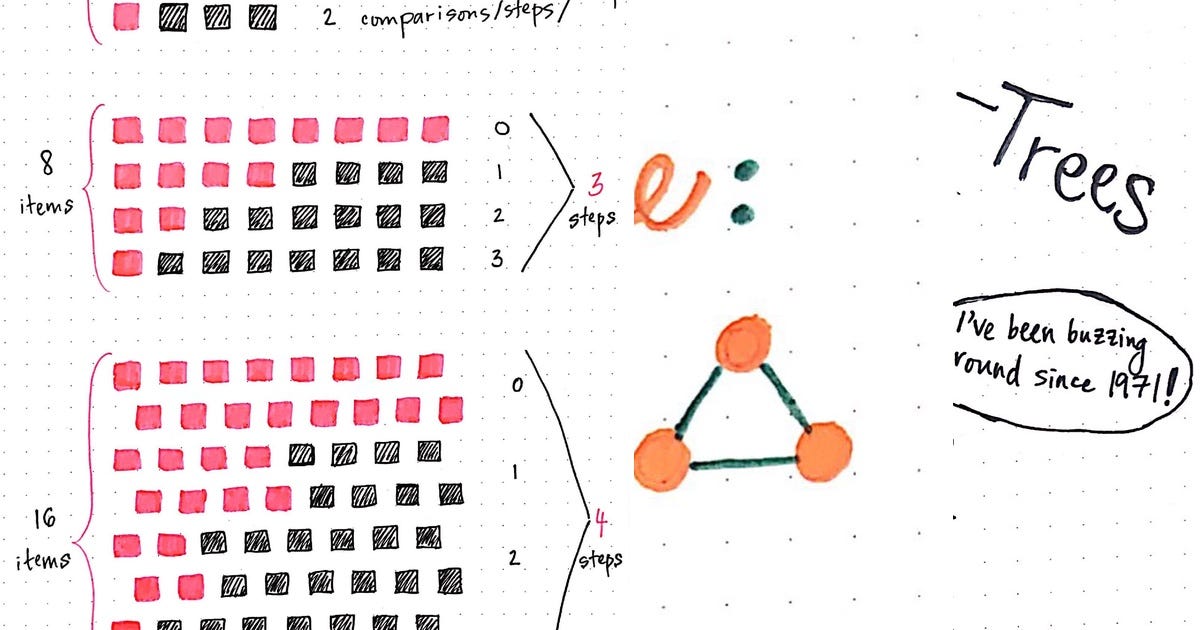 2 comparisons/steps/
8
items
0
1
2
3
3
steps
16
items
0
1
2
4
steps
e:
-Trees
I've been buzzing
round since 1971!